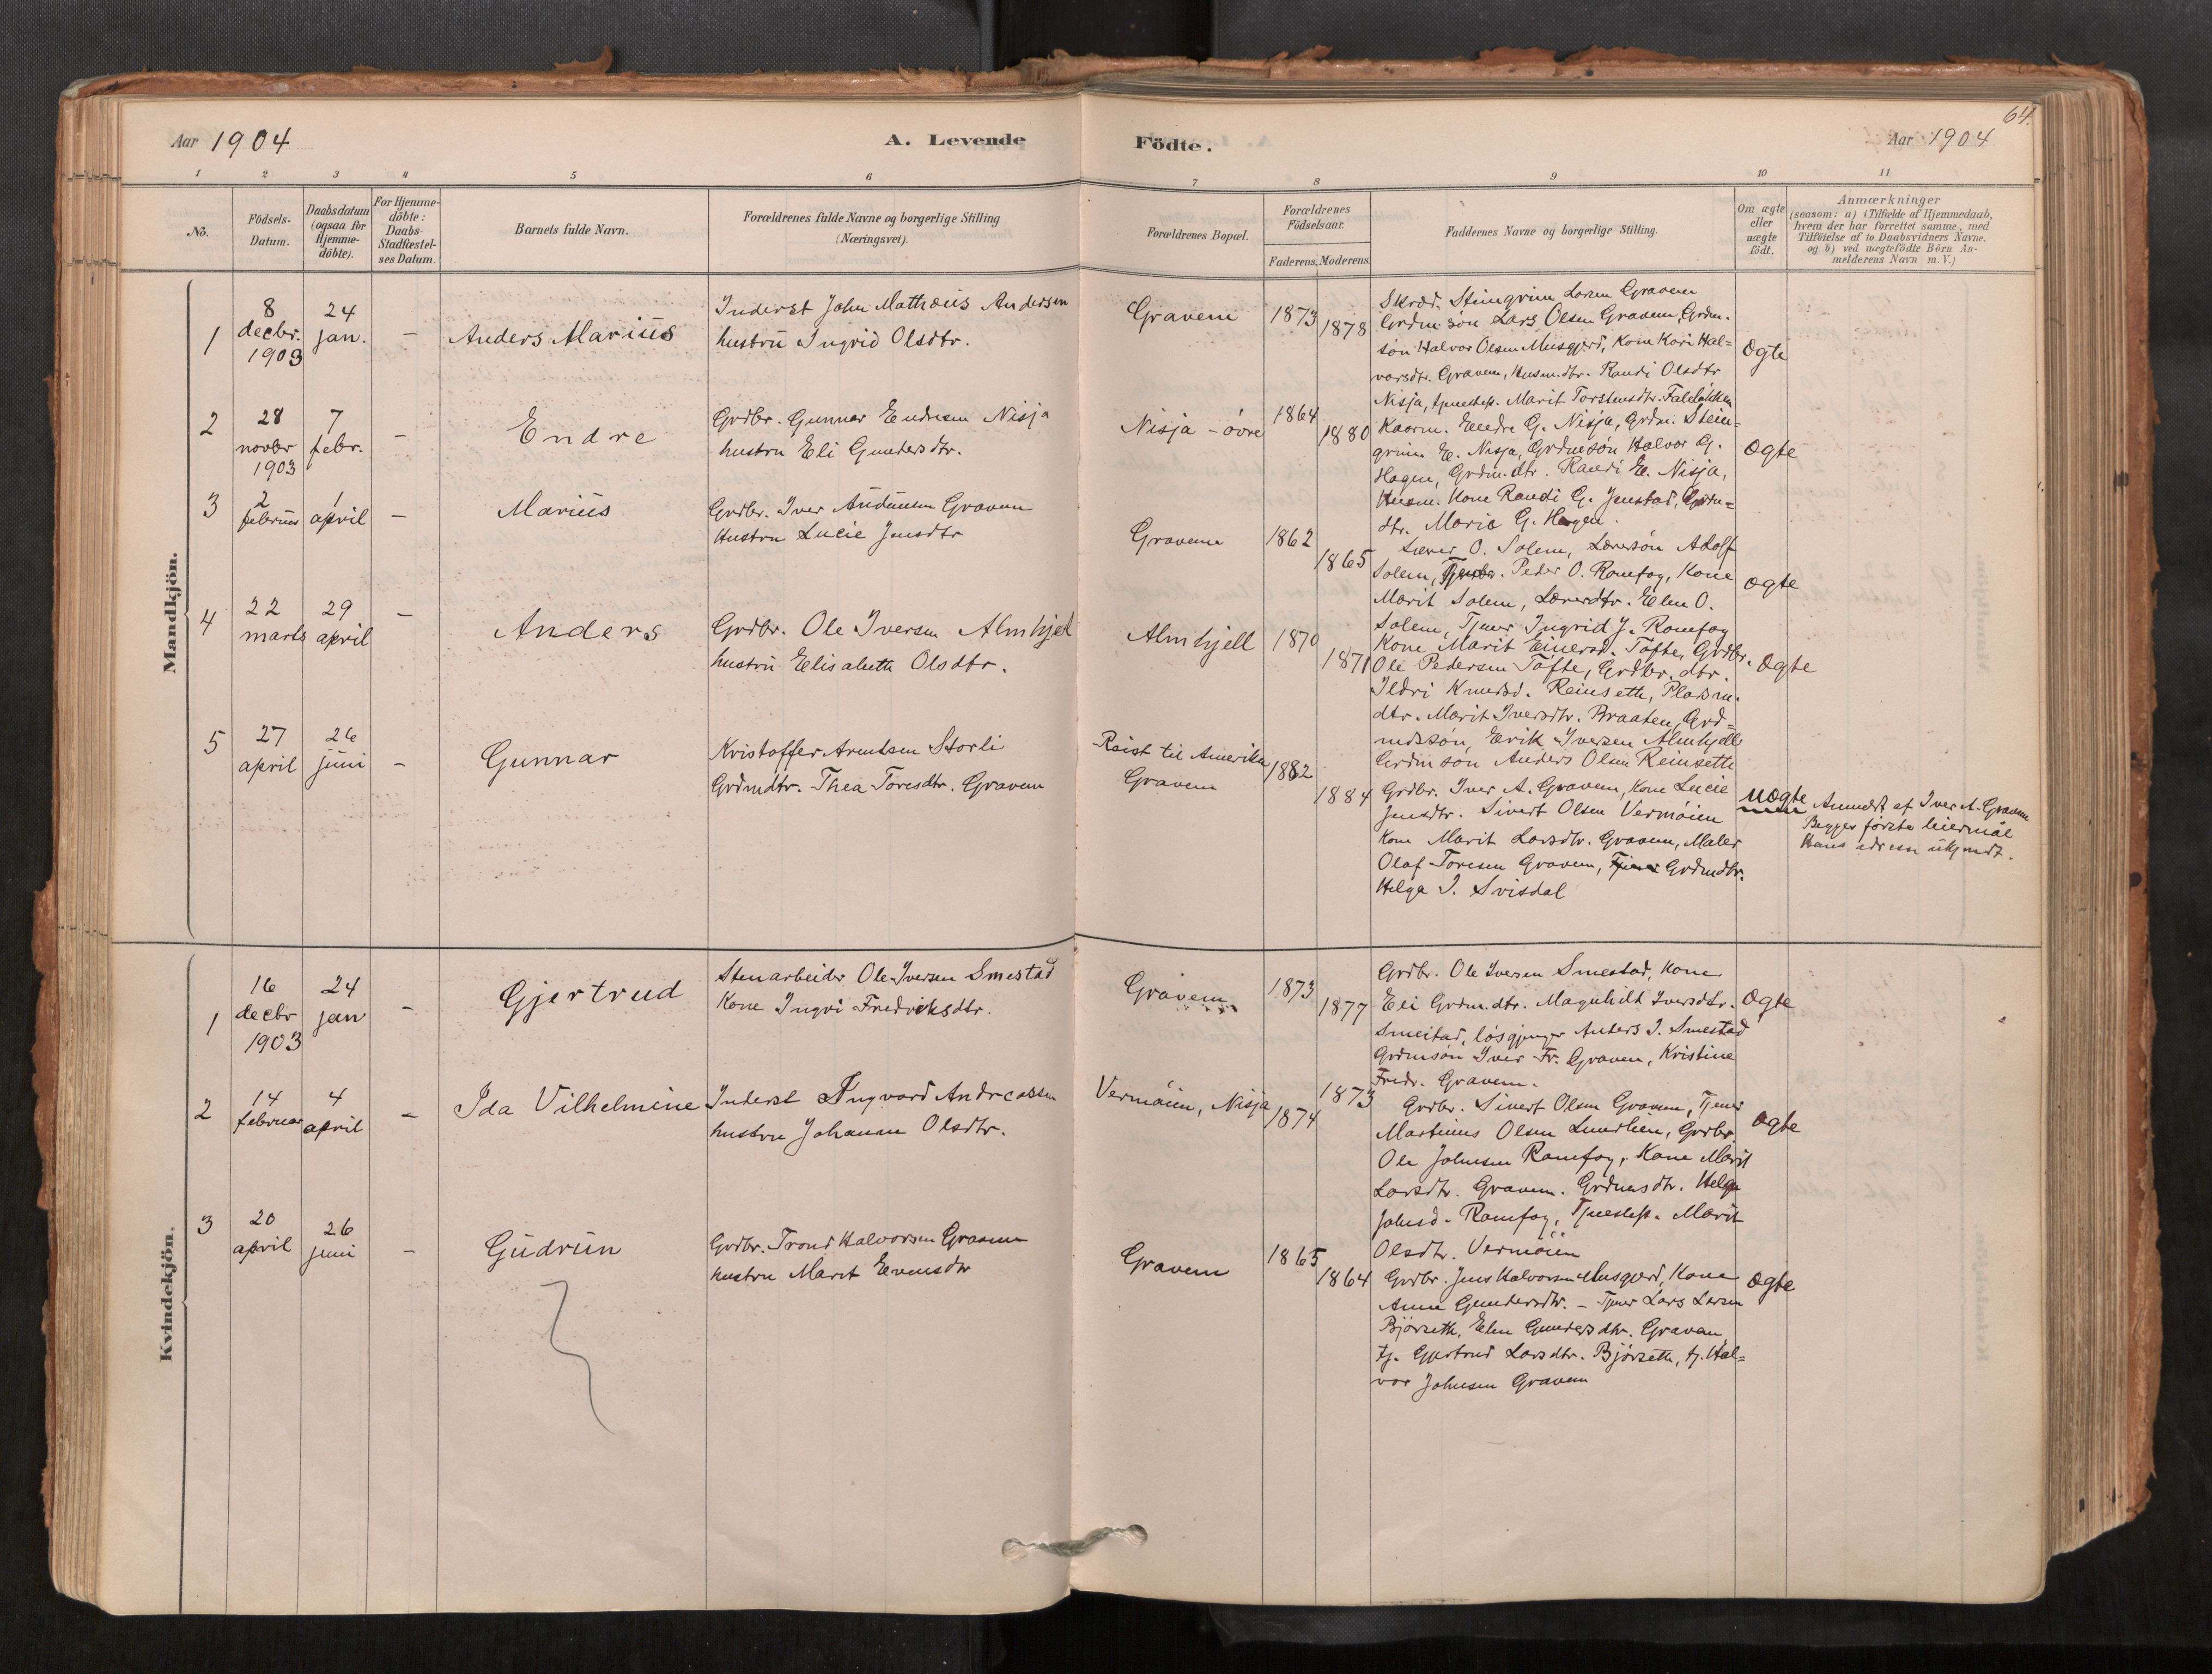 64.
Aar 1904
A. Levende
Födte.
Aar 1904
1 2 3 4 5 6 7 8 9 10 11
No.
Födsels-
Datum.
Daabsdatum
(ogsaa for
Hjemme-
döbte).
For Hjemme-
döbte:
Daabs-
Stadfæstel-
ses Datum.
Barnets fulde Navn.
Forældrenes fulde Navne og borgerlige Stilling
(Næringsvei).
Forældrenes Bopæl.
Forældrenes
Födselsaar.
Faderens. Moderens.
Faddernes Navne og borgerlige Stilling.
Om ægte
eller
uægte
födt.
Anmærkninger
(saasom: a) i Tilfælde af Hjemmedaab,
hvem der har forrettet samme, med
Tilföielse af to Daabsvidners Navne.
og b) ved uægtefödte Börn An-
melderens Navn m. V.)
Mandkjön.
1
8
decbr.
1903
24
jan.
-
Anders Marius
Inderst John Mathæus Andersen
hustru Ingrid Olsdtr.
Gravem
1873
1878
Skræd. Steingrim Larsen Gravem
Grdm søn Lars Olsen Gravem, Grdm.
søn Halvor Olsen Musgjerd, Kone Kari Hal=
vorsdtr. Gravem, Husm.dtr. Randi Olsdtr
Nisja, Marit Torstensdtr. Faleløkken
Ogte
2
28
novbr
1903
7
febr.
-
Endre
Grdbr. Gunnar Endresen Nisja
hustru Eli Gundersdtr.
Nisja - övre
1864
1880
Kaarm. Endre G. Nisja, Grdm. Stein=
grim E. Nisja, Grdmsøn Halvor G.
Hagen, Grdm.dtr. Randi E. Nisja,
Husm. Kone Randi G. Jenstad, Grdm=
dtr. Marie G. Hagen.
Ogte
3
2
februar
1
april
-
Marius
Grdbr. Iver Audunsen Gravem
Hustru Lucie Jensdtr
Gravem
1862
1865
Lærer O. Solem, Lærersøn Adolf
Solem, Peder O. Romfog, Kone
Marit Solem, Lærerdtr. Elen O.
Solem, Tjener Ingrid J. Romfog
Ogte
4
22
marts
29
april
-
Anders
Grdbr. Ole Iversen Almhjel
hustru Elisabeth Olsdtr.
Almhjell
1870
1871
Kone Marit Einersd. Töfte, Grdbr.
Ole Pedersen Töfte, Grdbr. dtr.
Ildri Knudsd. Reinseth, Pladsm.
dtr. Marit Iversdtr. Braaten, Grd=
mdssøn, Erik Iversen Almhjell
Grdmsøn Anders Olsen Reinseth
Ogte
5
27
april
26
juni
-
Gunnar
Kristoffer Arntsen Storli
Grdmdtr. Thea Toresdtr. Gravem
Reist til Amerika
Gravem
1882
1884
Grdbr. Iver A. Gravem, Kone Lucie
Jensdtr. Sivert Olsen Vermøien
Kone Marit Larsdtr. Gravem, Maler
Olaf Toresen Gravem, Tjener Grdmdtr.
Helga I. Svisdal
uægte
Anmeldt af Iver A. Gravem
Begges første leiermål
Hans adresse ukjendt.
Kvindekjön.
1
16
decbr
1903
24
jan
-
Gjertrud
Stenarbeider Ole Iversen Smestad
Kone Ingri Fredriksdtr.
Gravem
1873
1877
Grdbr. Ole Iversen Smestad, Kone
Eli Grdm.dtr. Magnhild Iversdtr.
Smestad, løsgjenger Anders I. Smestad
Grdmsøn Iver Fr. Gravem, Kristine
Fredr. Gravem.
Ogte
2
14
februar
4
april
-
Ida Vilhelmine
Inderst Ingvard Andreassen
hustru Johanne Olsdtr.
Vermøien, Nisja
1874
1873
Grdbr. Sivert Olsen Gravem, Tjener
Martinus Olsen Lundlien, Grdbr.
Ole Johnsen Romfog, Kone Marit
Larsdtr. Gravem. Grdmsdtr. Helga
Johnsd. Romfog, Marit
Olsdtr. Vermøien
ægte
3
20
april
26
juni
-
Gudrun
Grdbr. Trond Halvorsen Gravem
hustru Marit Evensdtr
Gravem
1865
1864
Grdbr. Jens Halvorsen Musgjerd, Kone
Anne Gundersdtr. - Tjener Lars Larsen
Bjørseth, Elen Gundersdtr. Gravem,
tj. Gjertrud Larsdtr. Bjørseth, tj. Hal=
vor Johnsen Gravem
Ogte